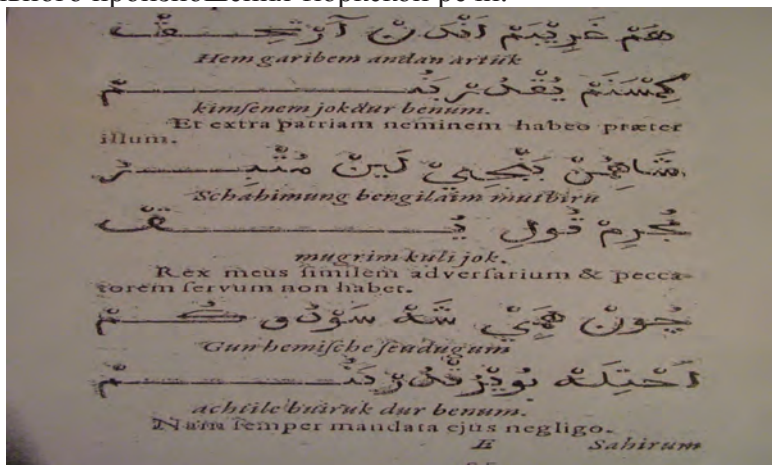 هَمْ غَرِيْبَمْ اَنْدَنْ آرْتِـــقْ
Hem garibem andan artuk
كِمْسَنَمْ يُقْدُرْ بَنُـــــمْ
kimſenem jokdur benum.
Et extra patriam neminem habeo præter
illum.
شَاهِمُنْ لَيِنْ مُتْبِـــرُ
Schahimung bengilaim mutbiru
مُجْرِمْ قُولِ يُـــقْ
mugrim kuli jok.
Rex meus ſimilem adverſarium & pecca-
torem ſervum non habet.
چُونْ هَمِيْ شَهْ سَوْدُوكُـــمْ
Gun hemiſche ſeudugum
اَحْتِلَهْ بُويْرُقْدُرْ بَنُـــــمْ
achtile buiruk dur benum.
Nam ſemper mandata ejus negligo.
E Sahirum